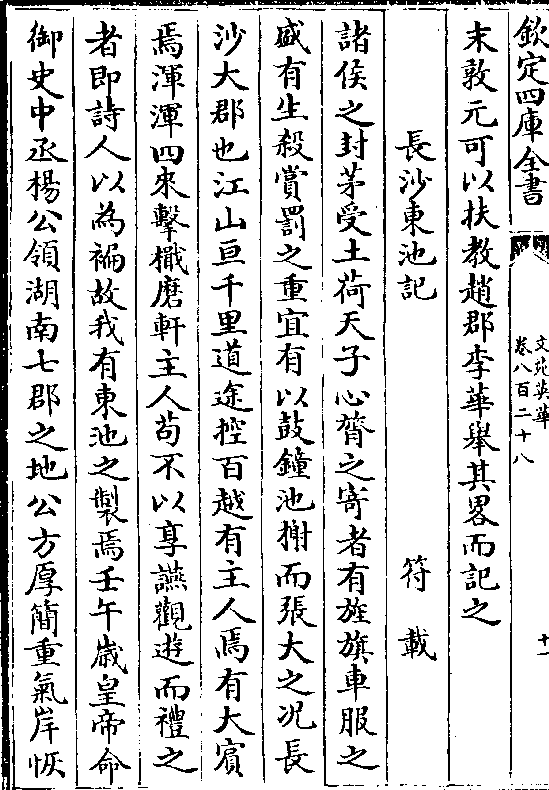 欽定四庫全書
文苑英華
卷八百二十八
十一
末敦元可以扶教趙郡李華舉其畧而記之
長沙東池記
符載
諸侯之封茅受土荷天子心膂之寄者有旌旗車服之
盛有生殺賞罰之重宜有以鼓鐘池榭而張大之况長
沙大郡也江山亘千里道途控百越有主人焉有大賓
焉渾渾四來擊檝磨軒主人苟不以享讌觀遊而禮之
者即詩人以為褊故我有東池之製焉壬午歳皇帝命
御史中丞楊公領湖南七郡之地公方厚簡重氣岸恢